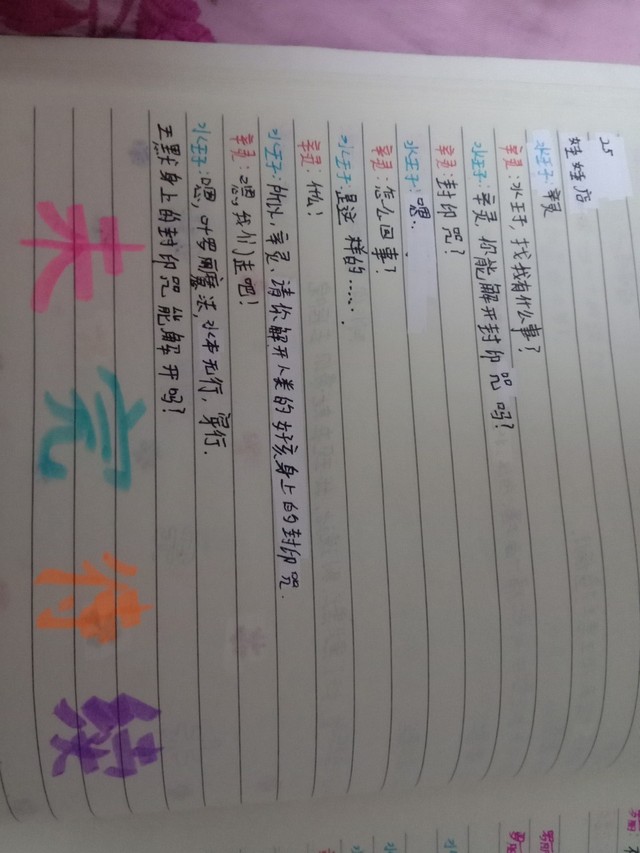 25
娃娃店
水王子:辛灵
辛灵:水王子,找我有什么事?
水王子:辛灵,你能解开封印咒吗?
辛灵:封印咒?
水王子:嗯.
辛灵:怎么回事?
水王子:是这样的…….
辛灵:什么!
水王子:所以,辛灵、请你解开人类的女孩身上的封印咒.
辛灵:嗯,我们走吧!
水王子:嗯,叶罗丽魔法,水本无行,穿行.
王默身上的封印咒能解开吗?
未完待续